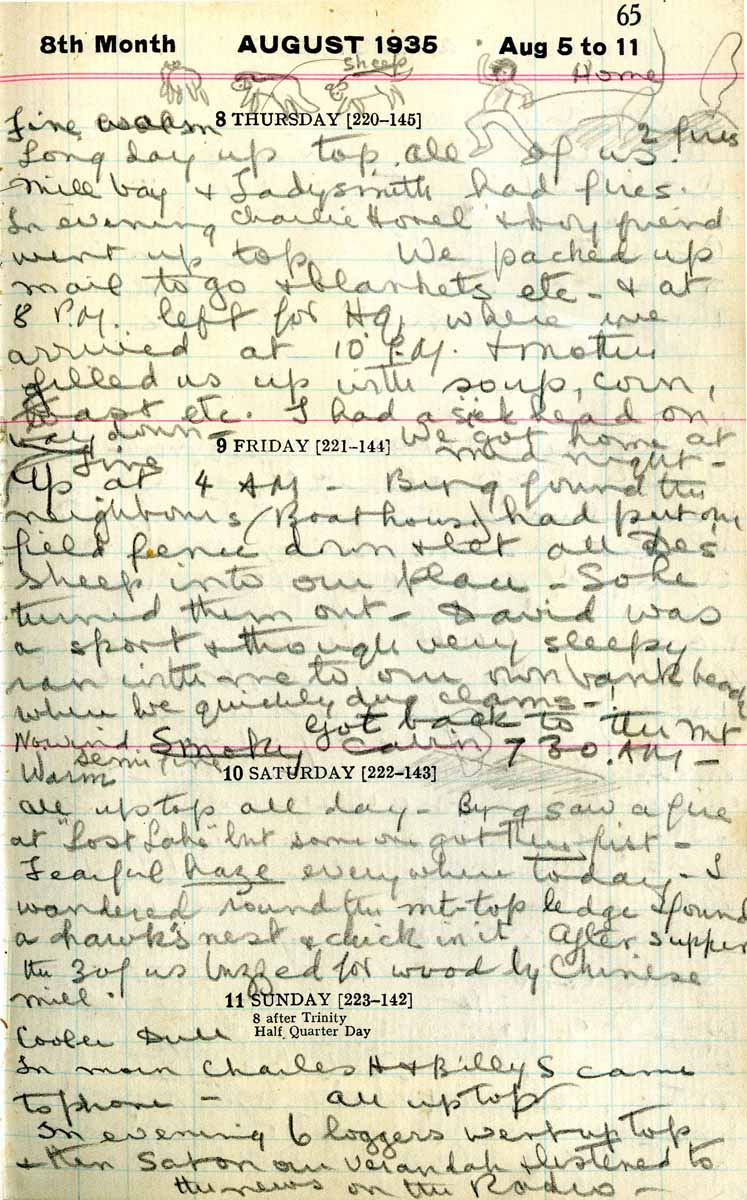 65
8th Month AUGUST 1935 Aug 5 to 11
sheep
Home
8 THURSDAY [220–145]
Fine warm
2 fires
Long day up top all of us.
Mill bay & Ladysmith had fires.
In evening Charlie & boy friend
went up top We packed up
mail to go & blankets etc – & at
8 P.M. left for HQ, where we
arrived at 10 P.M. & mother
filled us up with soup, corn,
toast etc. I had a sick head on
way down –
We got home at
mid night –
9 FRIDAY [221–144]
Fine
Up at 4 AM – Byng found the
neighbours (Boathouse) had put our
field fence down & let all Des
sheep into our place – So he
turned them out – David was
a sport & though very sleepy
ran with me to our own bank beach
where we quickly dug clams – !
Got back to the Mt
Smoky cabin 7 30. AM –
No wind
semi fine
Warm
10 SATURDAY [222–143]
All up top all day – Byng saw a fire
at "Lost Lake" but some one got there first –
Fearful haze everywhere today – I
wandered round the mt-top ledge & found
a hawk's nest & chick in it After supper
the 3 of us buzzed for wood by Chinese
mill.
11 SUNDAY [223–142]
8 after Trinity
Half Quarter Day
Cooler Dull
In morn Charles H & Billy S came
to phone – All up top
In evening 6 loggers went up top
& then Sat on our verandah & listened to
the news on the Radio –